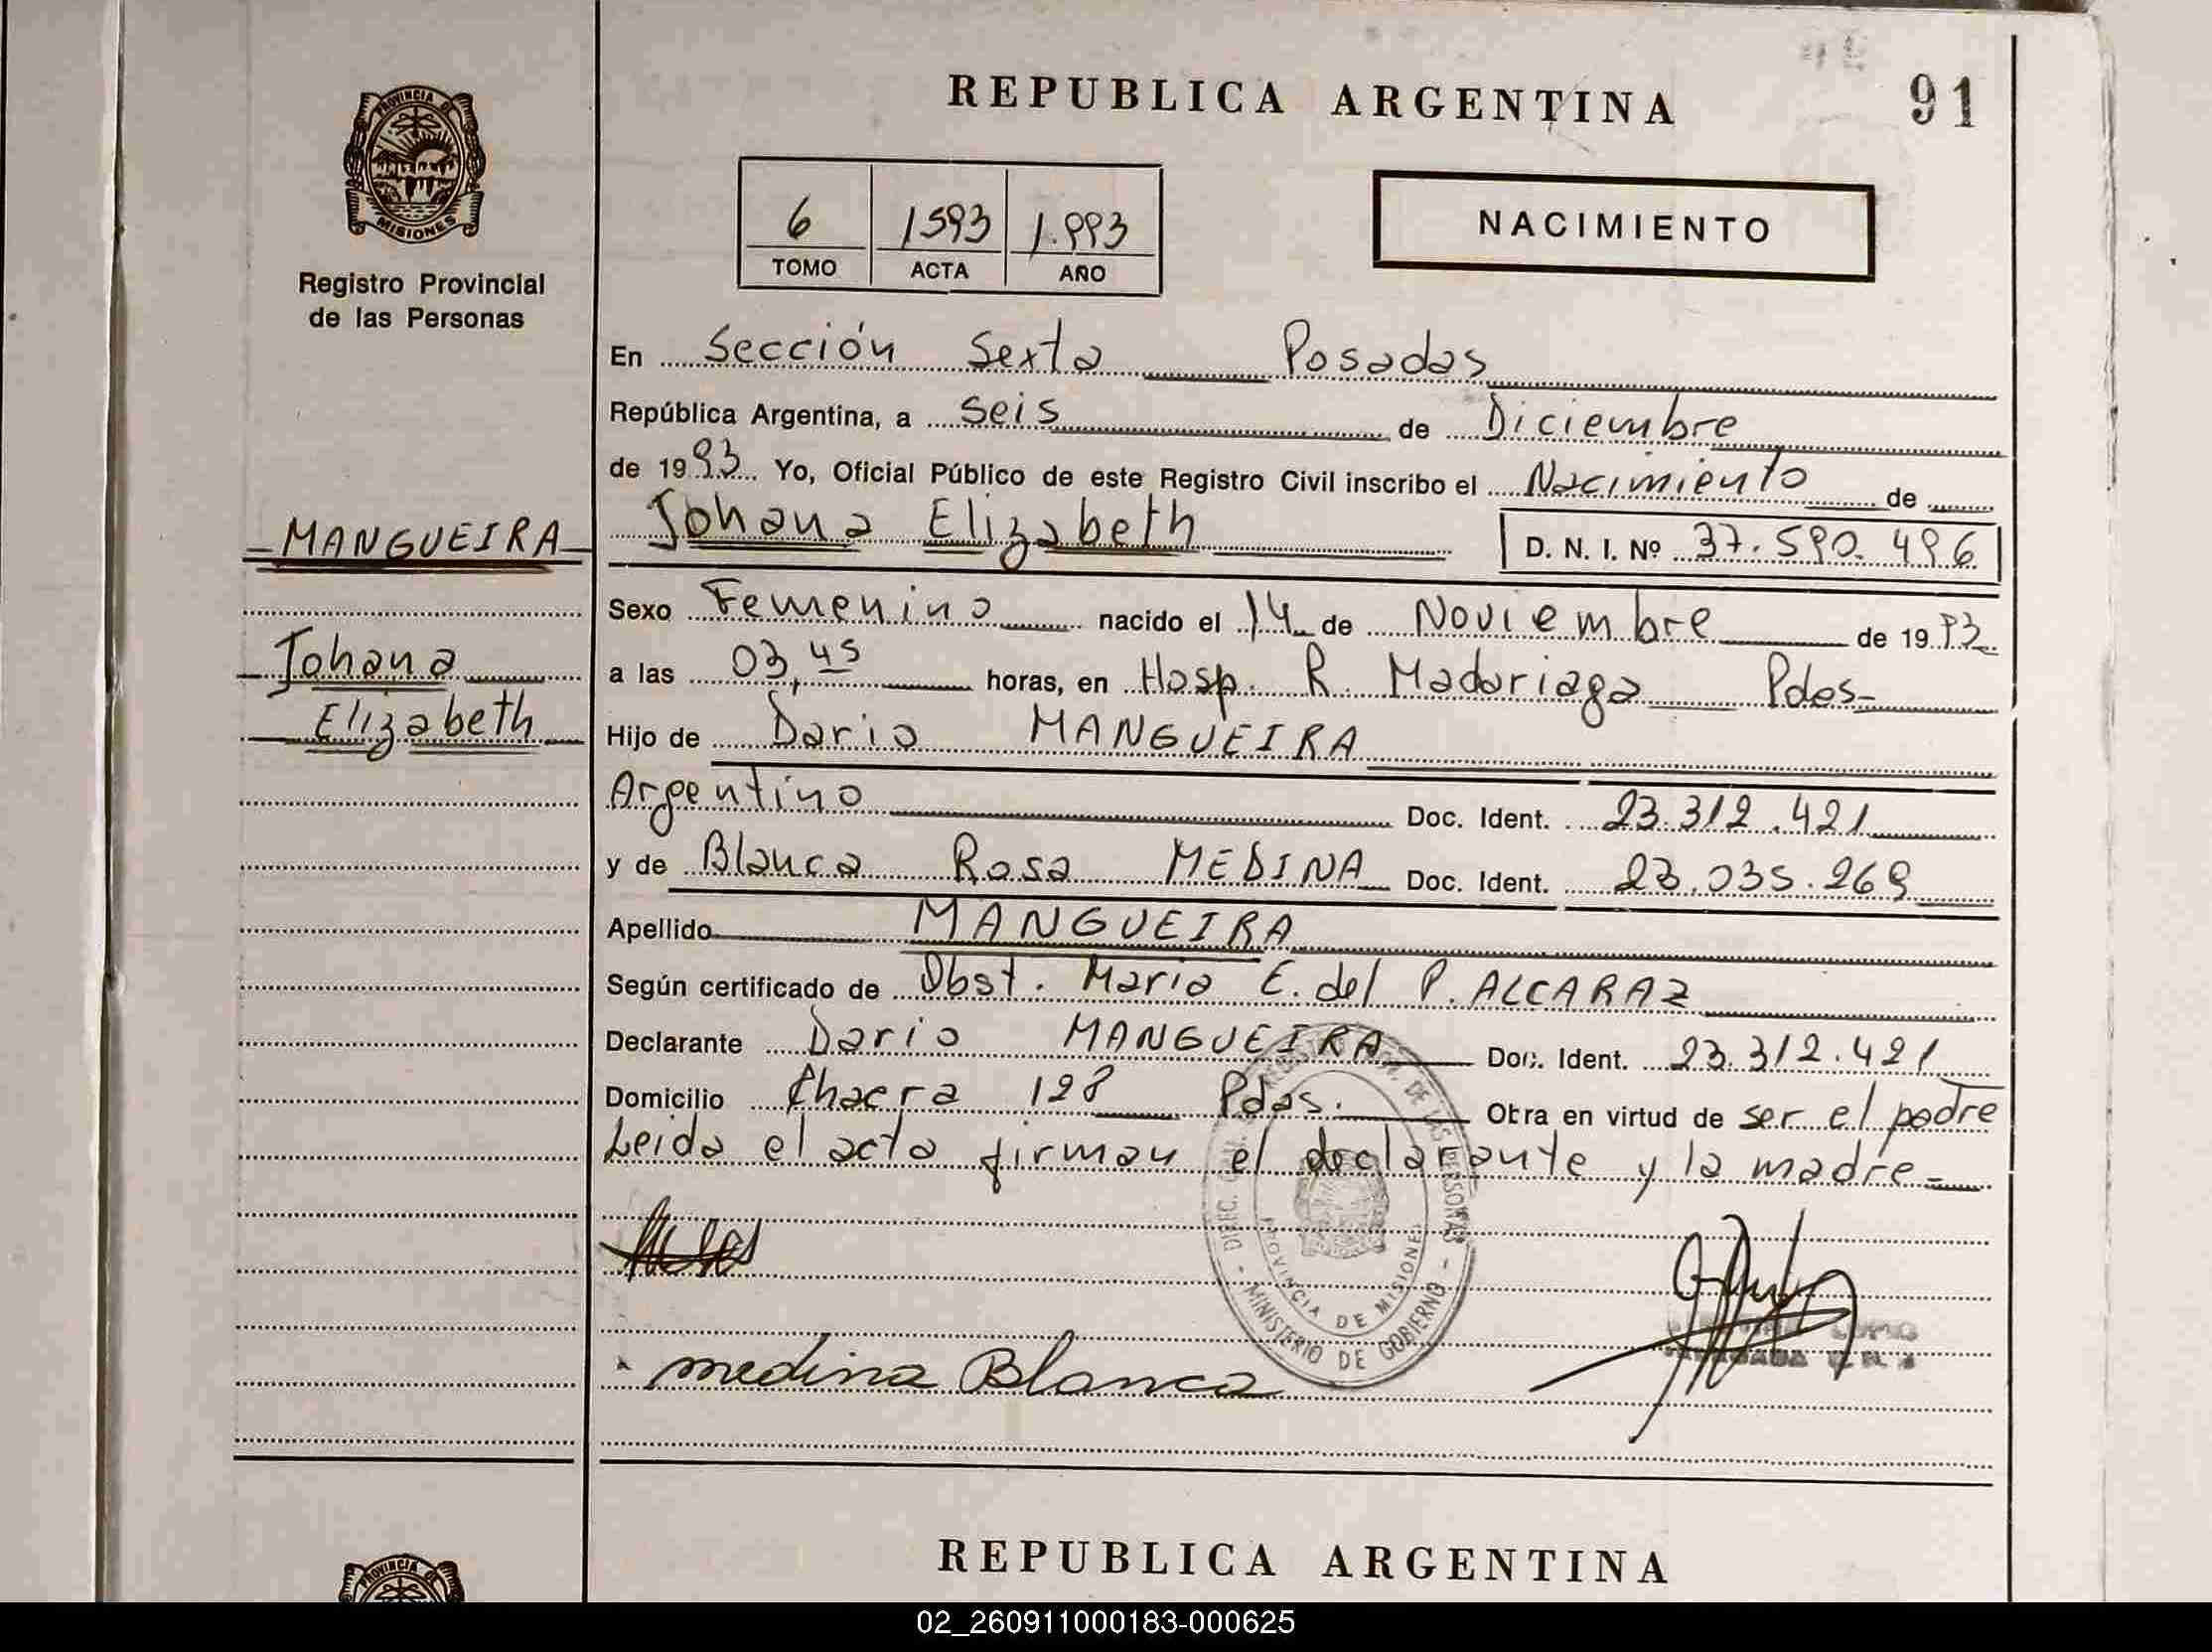 REPUBLICA ARGENTINA
91
PROVINCIA DE
MISIONES
Registro Provincial
de las Personas
6 1593 1.993
TOMO ACTA AÑO
NACIMIENTO
En Sección Sexta Posadas
República Argentina, a seis de Diciembre
de 1993 Yo, Oficial Público de este Registro Civil inscribo el Nacimiento de
MANGUEIRA
Johana Elizabeth D. N. I. Nº 37.590.496
Sexo Femenino nacido el 14 de Noviembre de 1993
Johana
a las 03,45 horas, en Hosp. R. Madariaga Pdas
Elizabeth
Hijo de Dario MANGUEIRA
Argentino Doc. Ident. 23.312.421
y de Blanca Rosa MEDINA Doc. Ident. 23.035.269
Apellido MANGUEIRA
Según certificado de Obst. Maria E. del P. ALCARAZ
Declarante Dario MANGUEIRA Doc. Ident. 23.312.421
Domicilio Chacra 128 Pdas. Obra en virtud de ser el padre
Leida el acta firman el declarante y la madre
DE LAS PERSONAS
PROVINCIA DE MISIONES
MINISTERIO DE GOBIERNO
medina Blanca
REPUBLICA ARGENTINA
PROVINCIA D
02_260911000183-000625